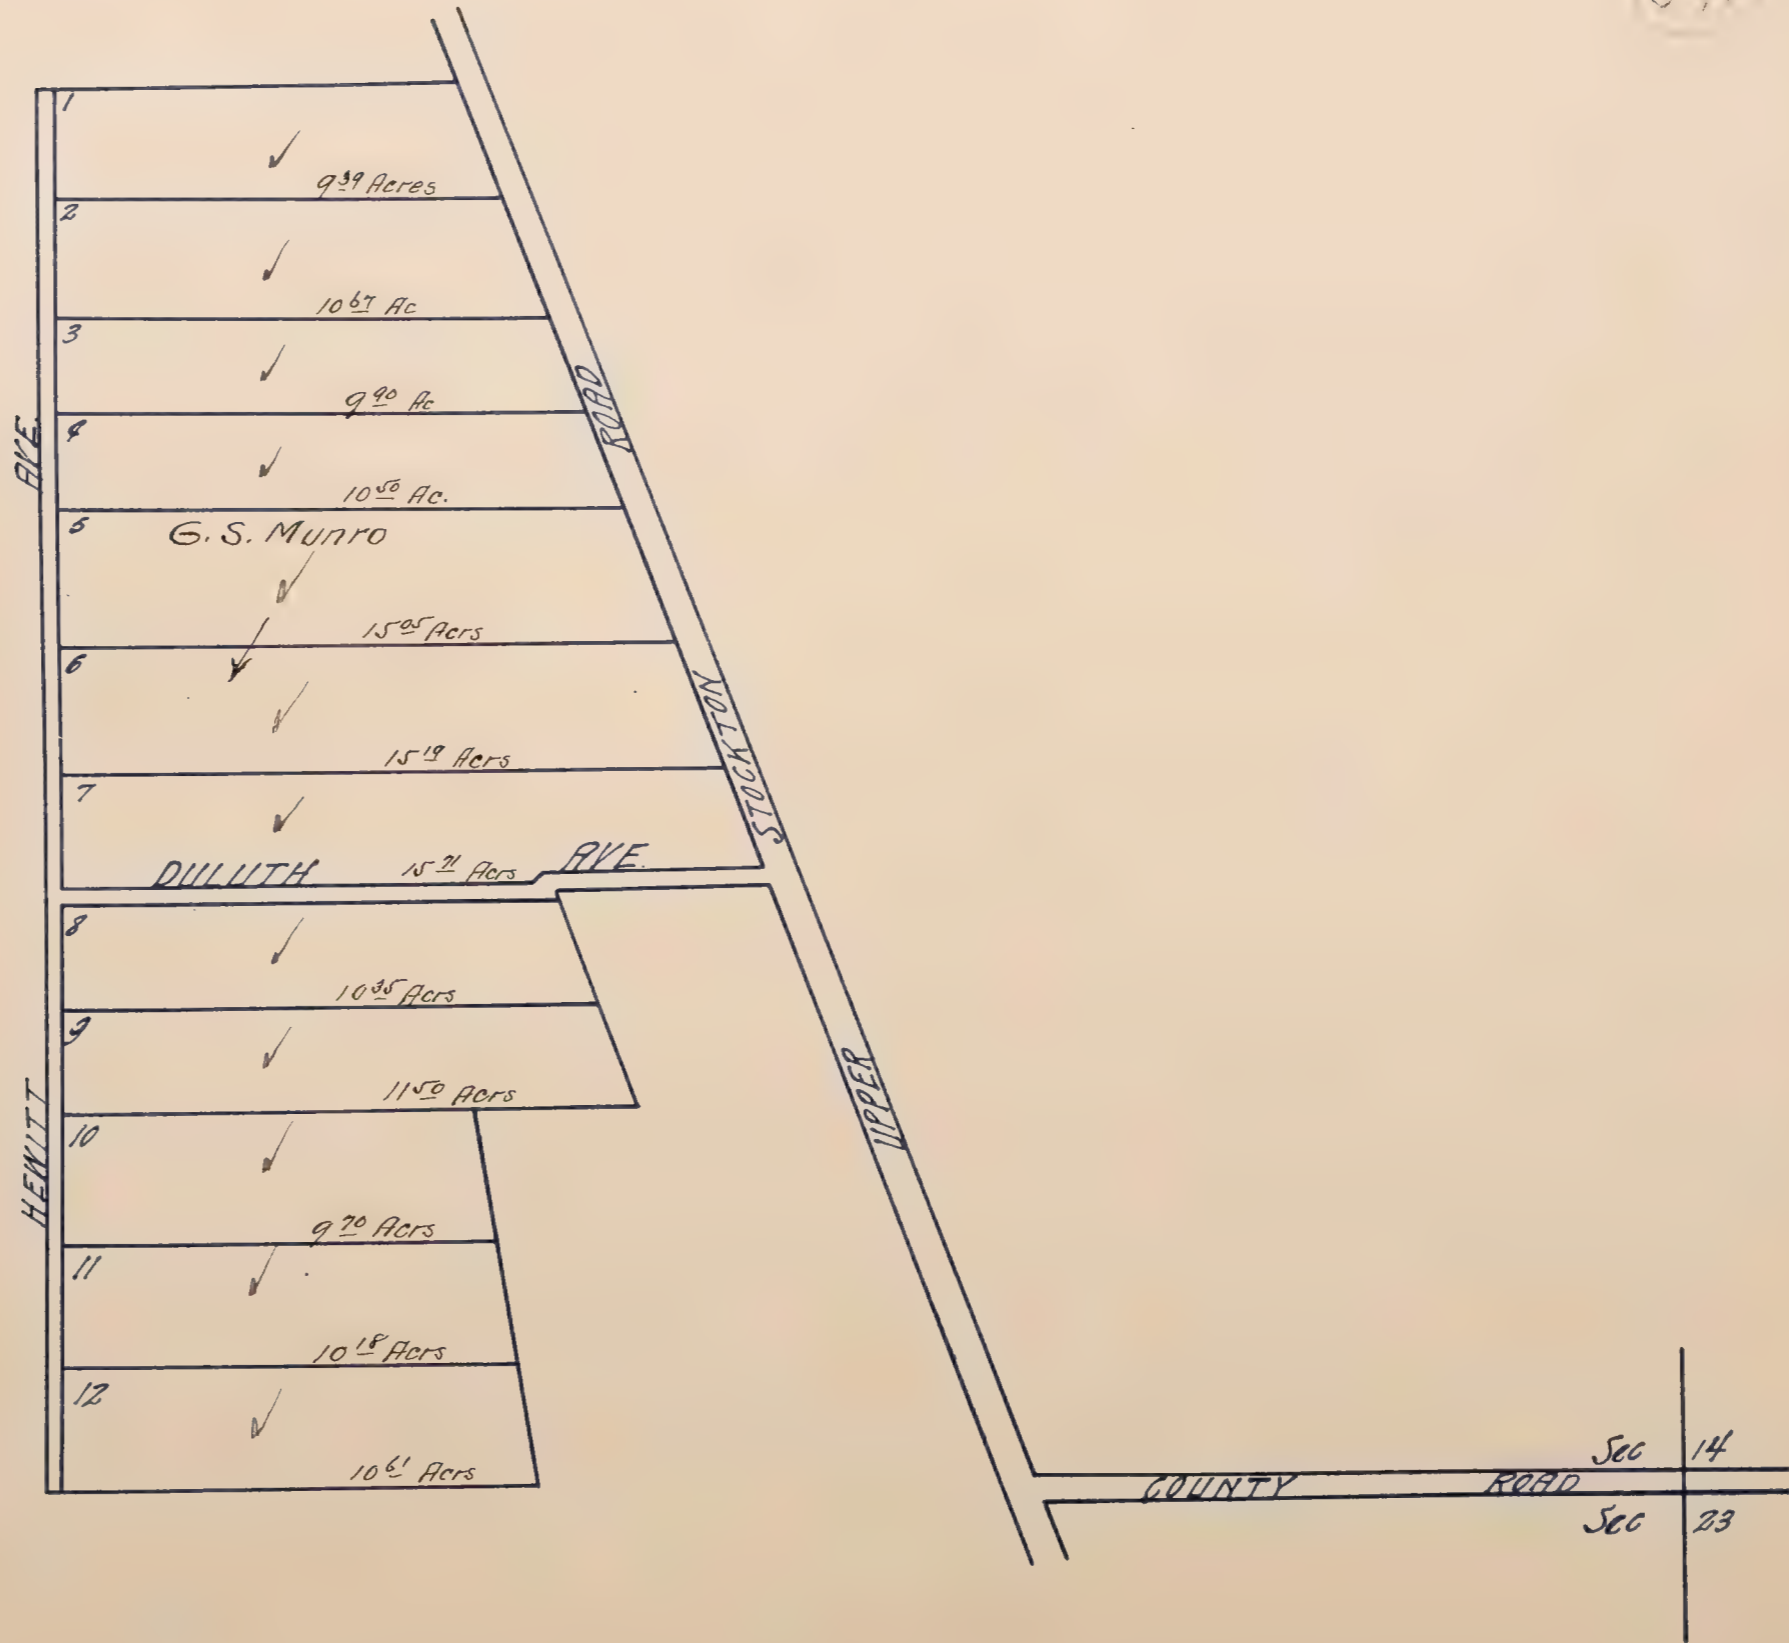 1
9 39 Acres
2
10 67 Ac
3
9 90 Ac
4
10 50 Ac.
5
G. S. Munro
15 05 Acrs
6
15 19 Acrs
7
DULUTH AVE.
15 71 Acrs
8
10 35 Acrs
9
11 50 Acrs
10
9 70 Acrs
11
10 18 Acrs
12
10 61 Acrs
HEWITT AVE.
UPPER STOCKTON ROAD
COUNTY ROAD
Sec 14
Sec 23